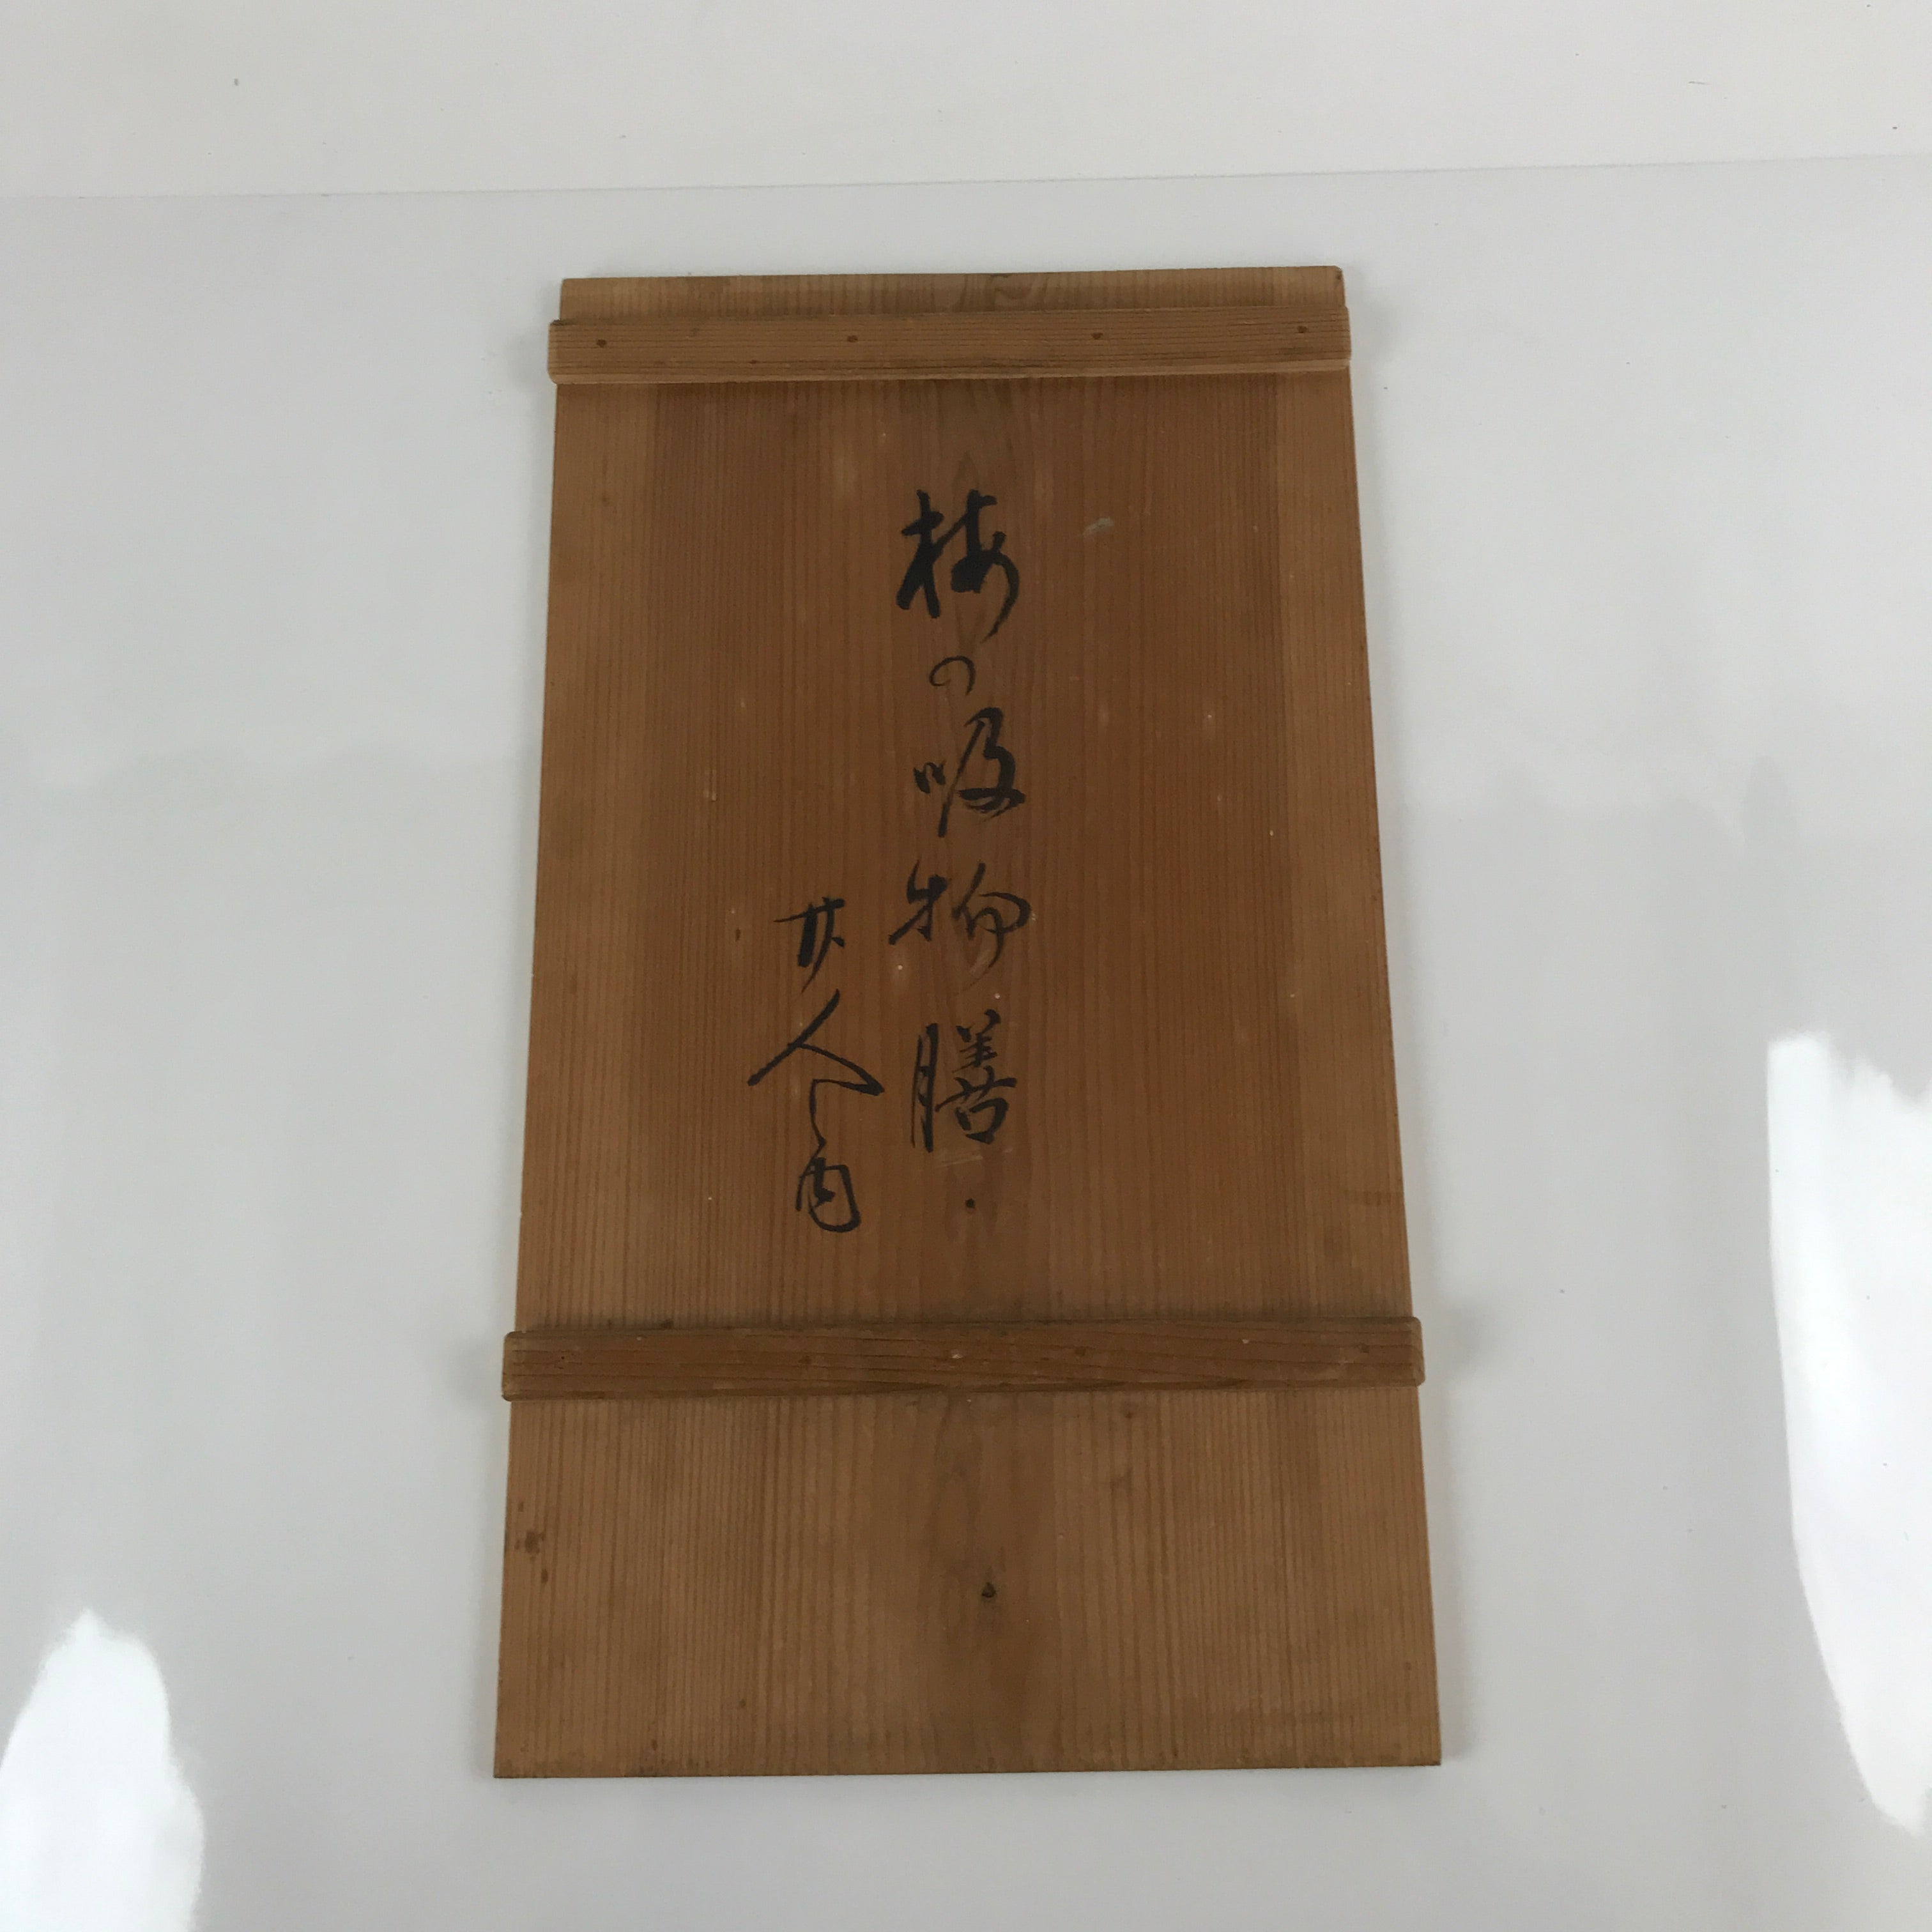 梅の吸物膳
廿人内